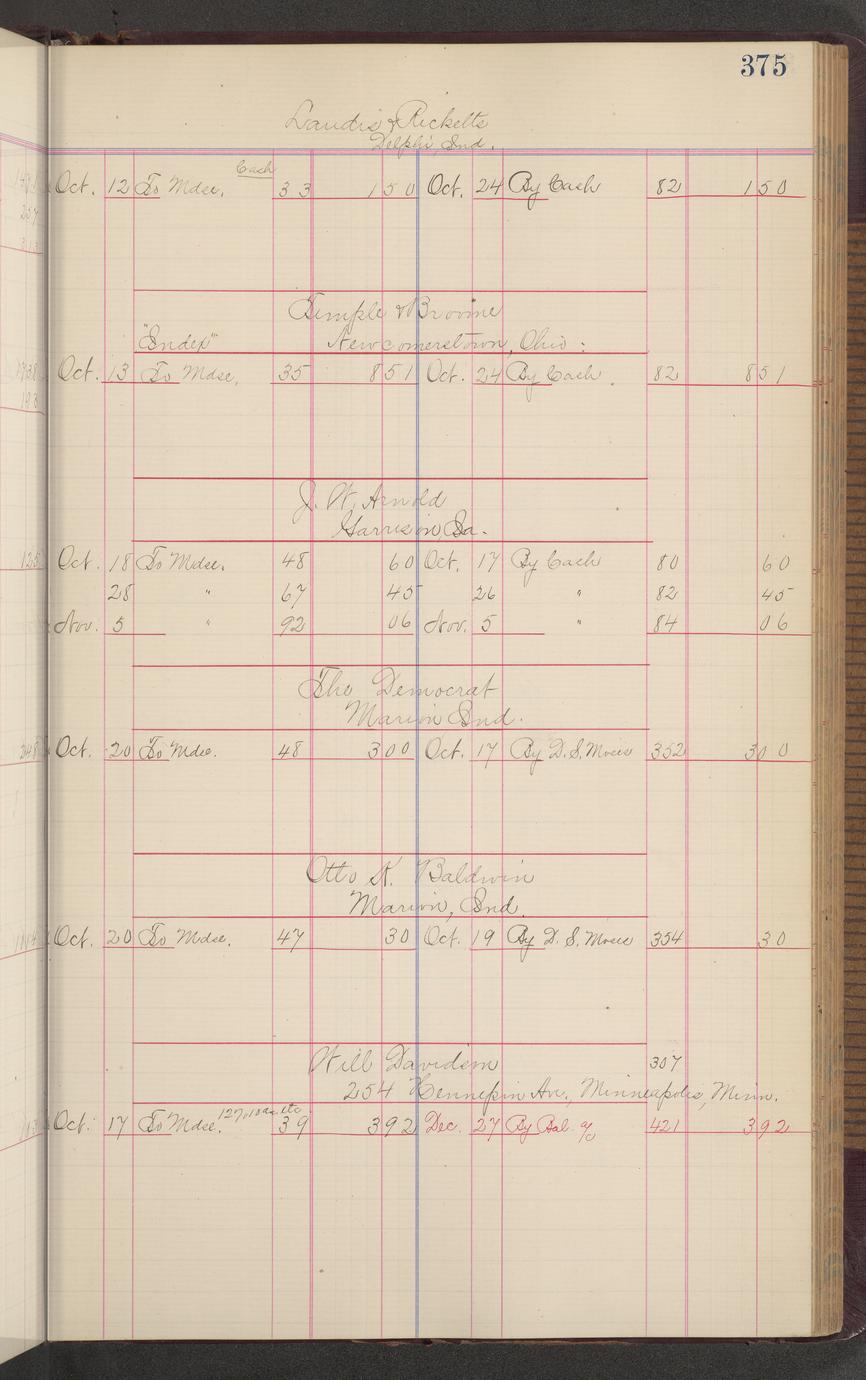 375
Landis & Ricketts
Delphi, Ind.
Cash
Oct. 12 To Mdse. 33 1 50 Oct. 24 By Cash 82 1 50
Temple & Browne
"Index" Newcomerstown, Ohio:
Oct. 13 To Mdse, 35 8 51 Oct. 24 By Cash 82 8 51
J. W. Arnold
Garrison, Ia.
Oct. 18 To Mdse. 48 60 Oct. 17 By Cash 80 60
28 " 67 45 26 " 82 45
Nov. 5 " 92 06 Nov. 5 " 84 06
The Democrat
Marion Ind.
Oct. 20 To Mdse. 48 3 00 Oct. 17 By D. S. 352 3 00
Otto K. Baldwin
Marion, Ind.
Oct. 20 To Mdse. 47 30 Oct. 19 By D. S. 354 30
Will Davidson 307
254 Hennepin Av., Minneapolis, Minn.
Oct. 17 To Mdse. etc. 39 3 92 Dec. 27 By Bal. a/c 421 3 92